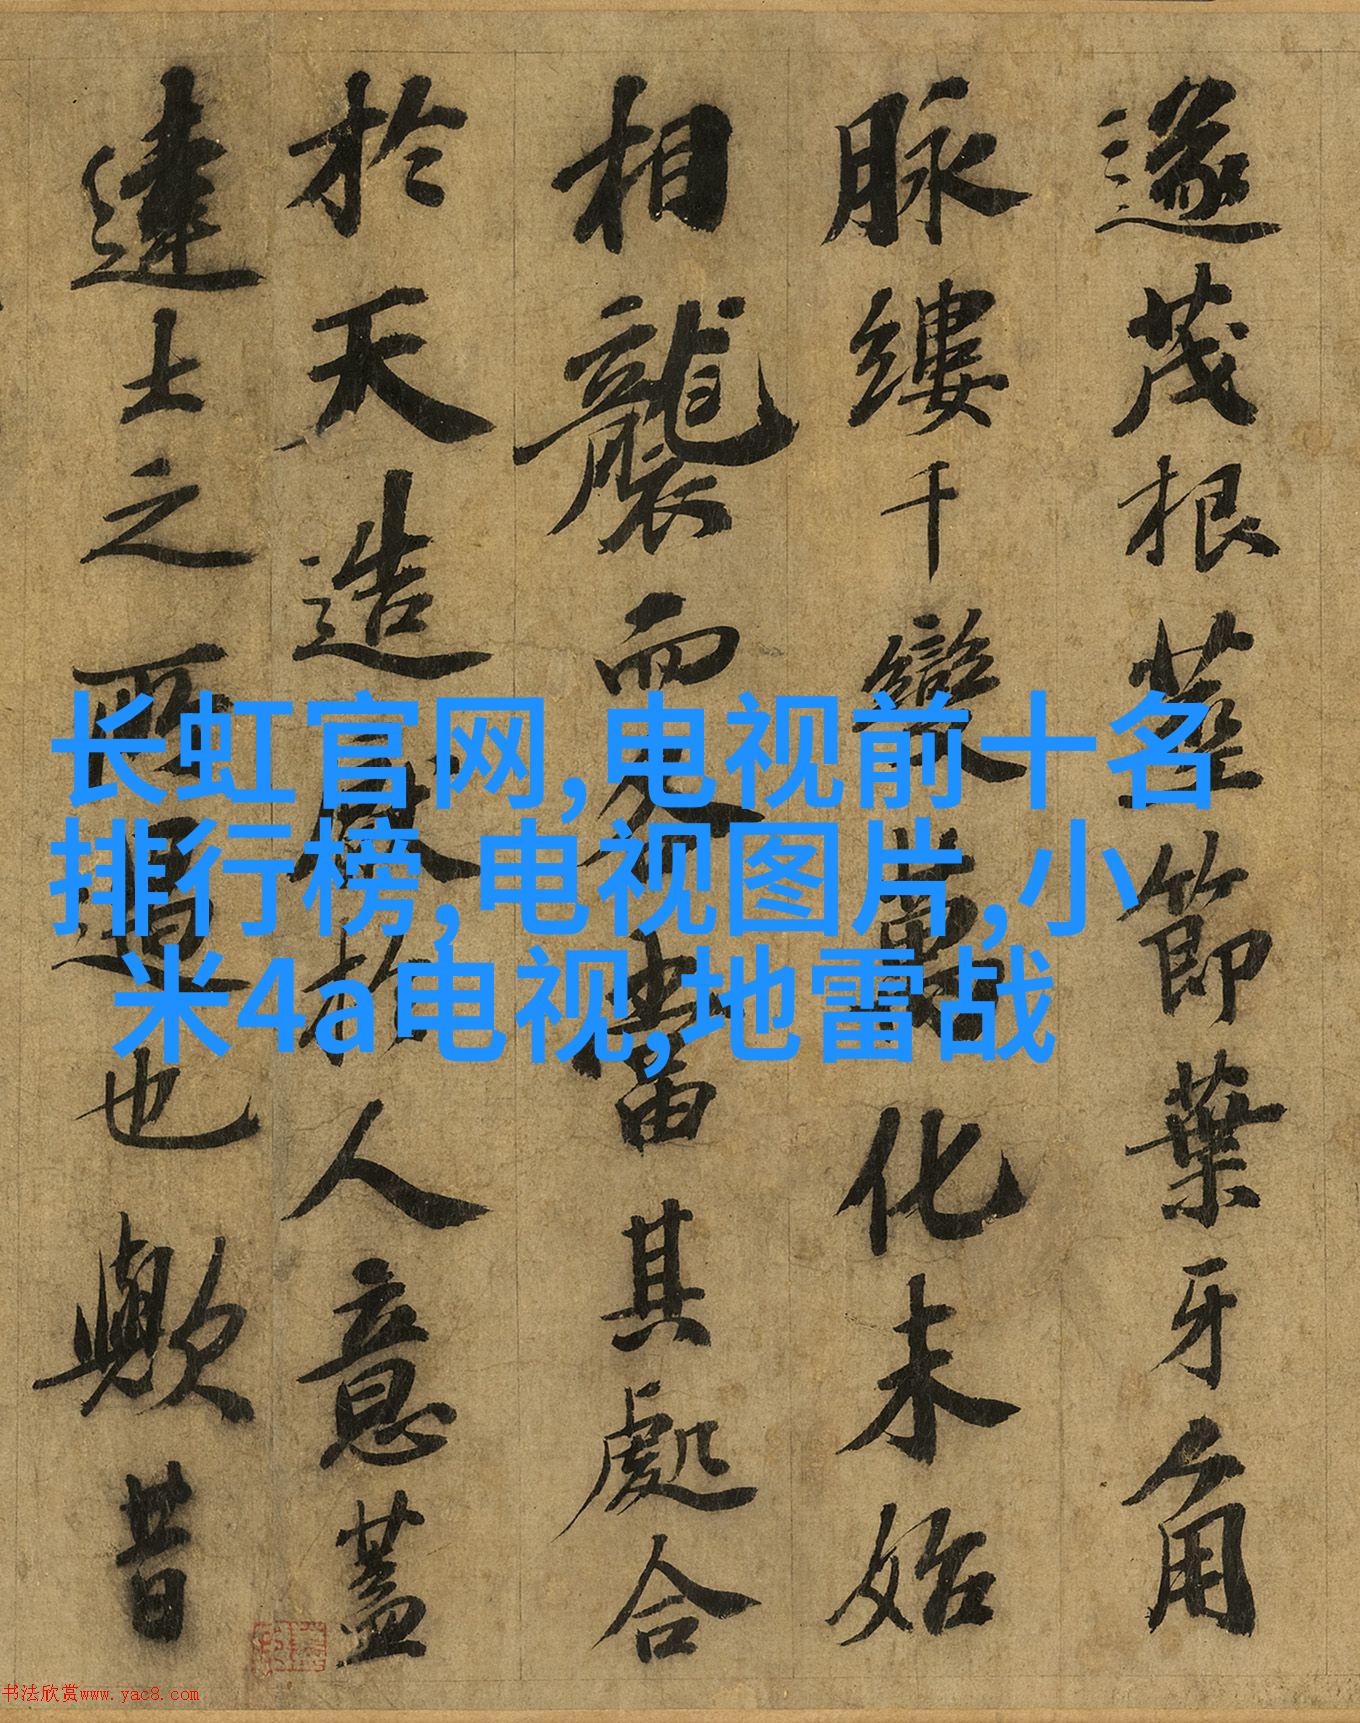 遂茂根莖節葉牙角
脉縷千變萬化未始
相襲而各當其處合
於天造厭於人意蓋
達士之所寓也歟昔
长虹官网,电视前十名
排行榜,电视图片,小
米4a电视,地雷战
书法欣赏www.yac8.com